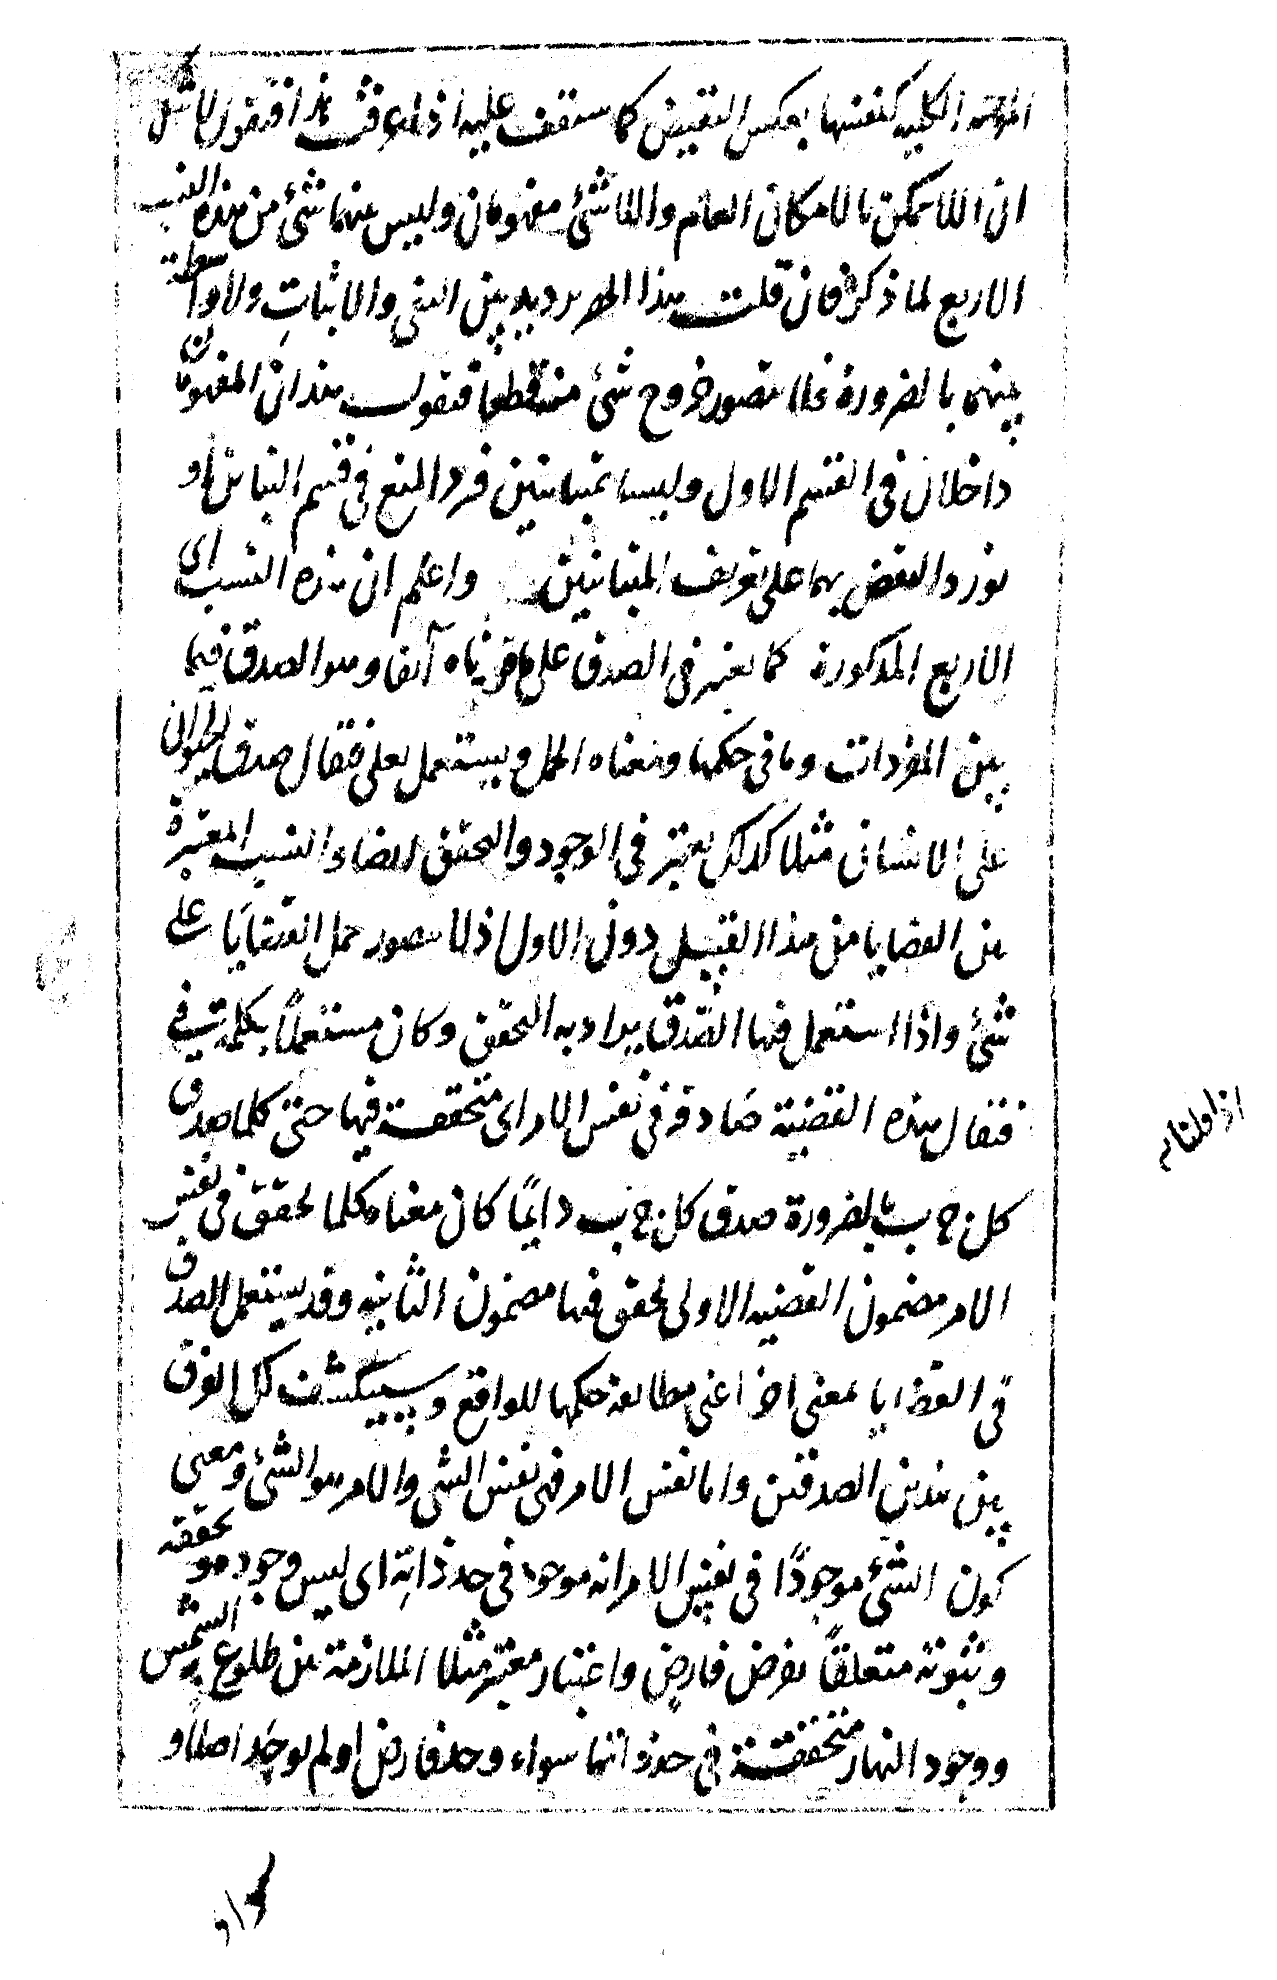 الموجبة الكلية كنفسها بعكس النقيض كما ستقف عليه اذا عرفت هذا فنقول لا شك
ان اللاممكن بالامكان العام واللاشئ مفهومان وليس بينهما شئ من هذه النسب
الاربع لما ذكر فان قلت هذا الحصر ترديد بين النفى والاثبات ولا واسطة
بينهما بالضرورة فلا يتصور خروج شئ منه قطعا فنقول هذان المفهومان
داخلان فى القسم الاول وليسا بمتباينين فيرد المنع فى قسم التباين او
نورد النقض بهما على تعريف المتباينين واعلم ان هذه النسب اى
الاربع المذكورة كما يعتبر فى الصدق على ما قررناه آنفا وهو الصدق فيما
بين المفردات وما فى حكمها ومعناه الحمل ويستعمل بعلى فيقال صدق الحيوان
على الانسان مثلا كذلك يعتبر فى الوجود والتحقق ايضا والنسب المعتبرة
بين القضايا من هذا القبيل دون الاول اذ لا يتصور حمل القضايا على
شئ واذا استعمل فيها الصدق يراد به التحقق وكان مستعملاً بكلمة فى
فيقال هذه القضية صادقة فى نفس الامر اى متحققة فيها حتى كلما صدق
كل ج ب بالضرورة صدق كل ج ب دايمًا كان معناه كلما تحقق فى نفس
الامر مضمون القضية الاولى تحقق فيها مضمون الثانية وقد يستعمل الصدق
فى القضايا بمعنى اخر اعنى مطابقة حكمها للواقع وسينكشف لك الفرق
بين هذين الصدقين واما نفس الامر فهى نفس الشئ والامر هو الشئ ومعنى
كون الشئ موجودًا فى نفس الامر انه موجود فى حد ذاته اى ليس وجوده وتحققه
وثبوته متعلقًا بفرض فارض واعتبار معتبر مثلا الملازمة بين طلوع الشمس
ووجود النهار متحققة فى حد ذاتها سواء وجد فارض او لم يوجد اصلا و